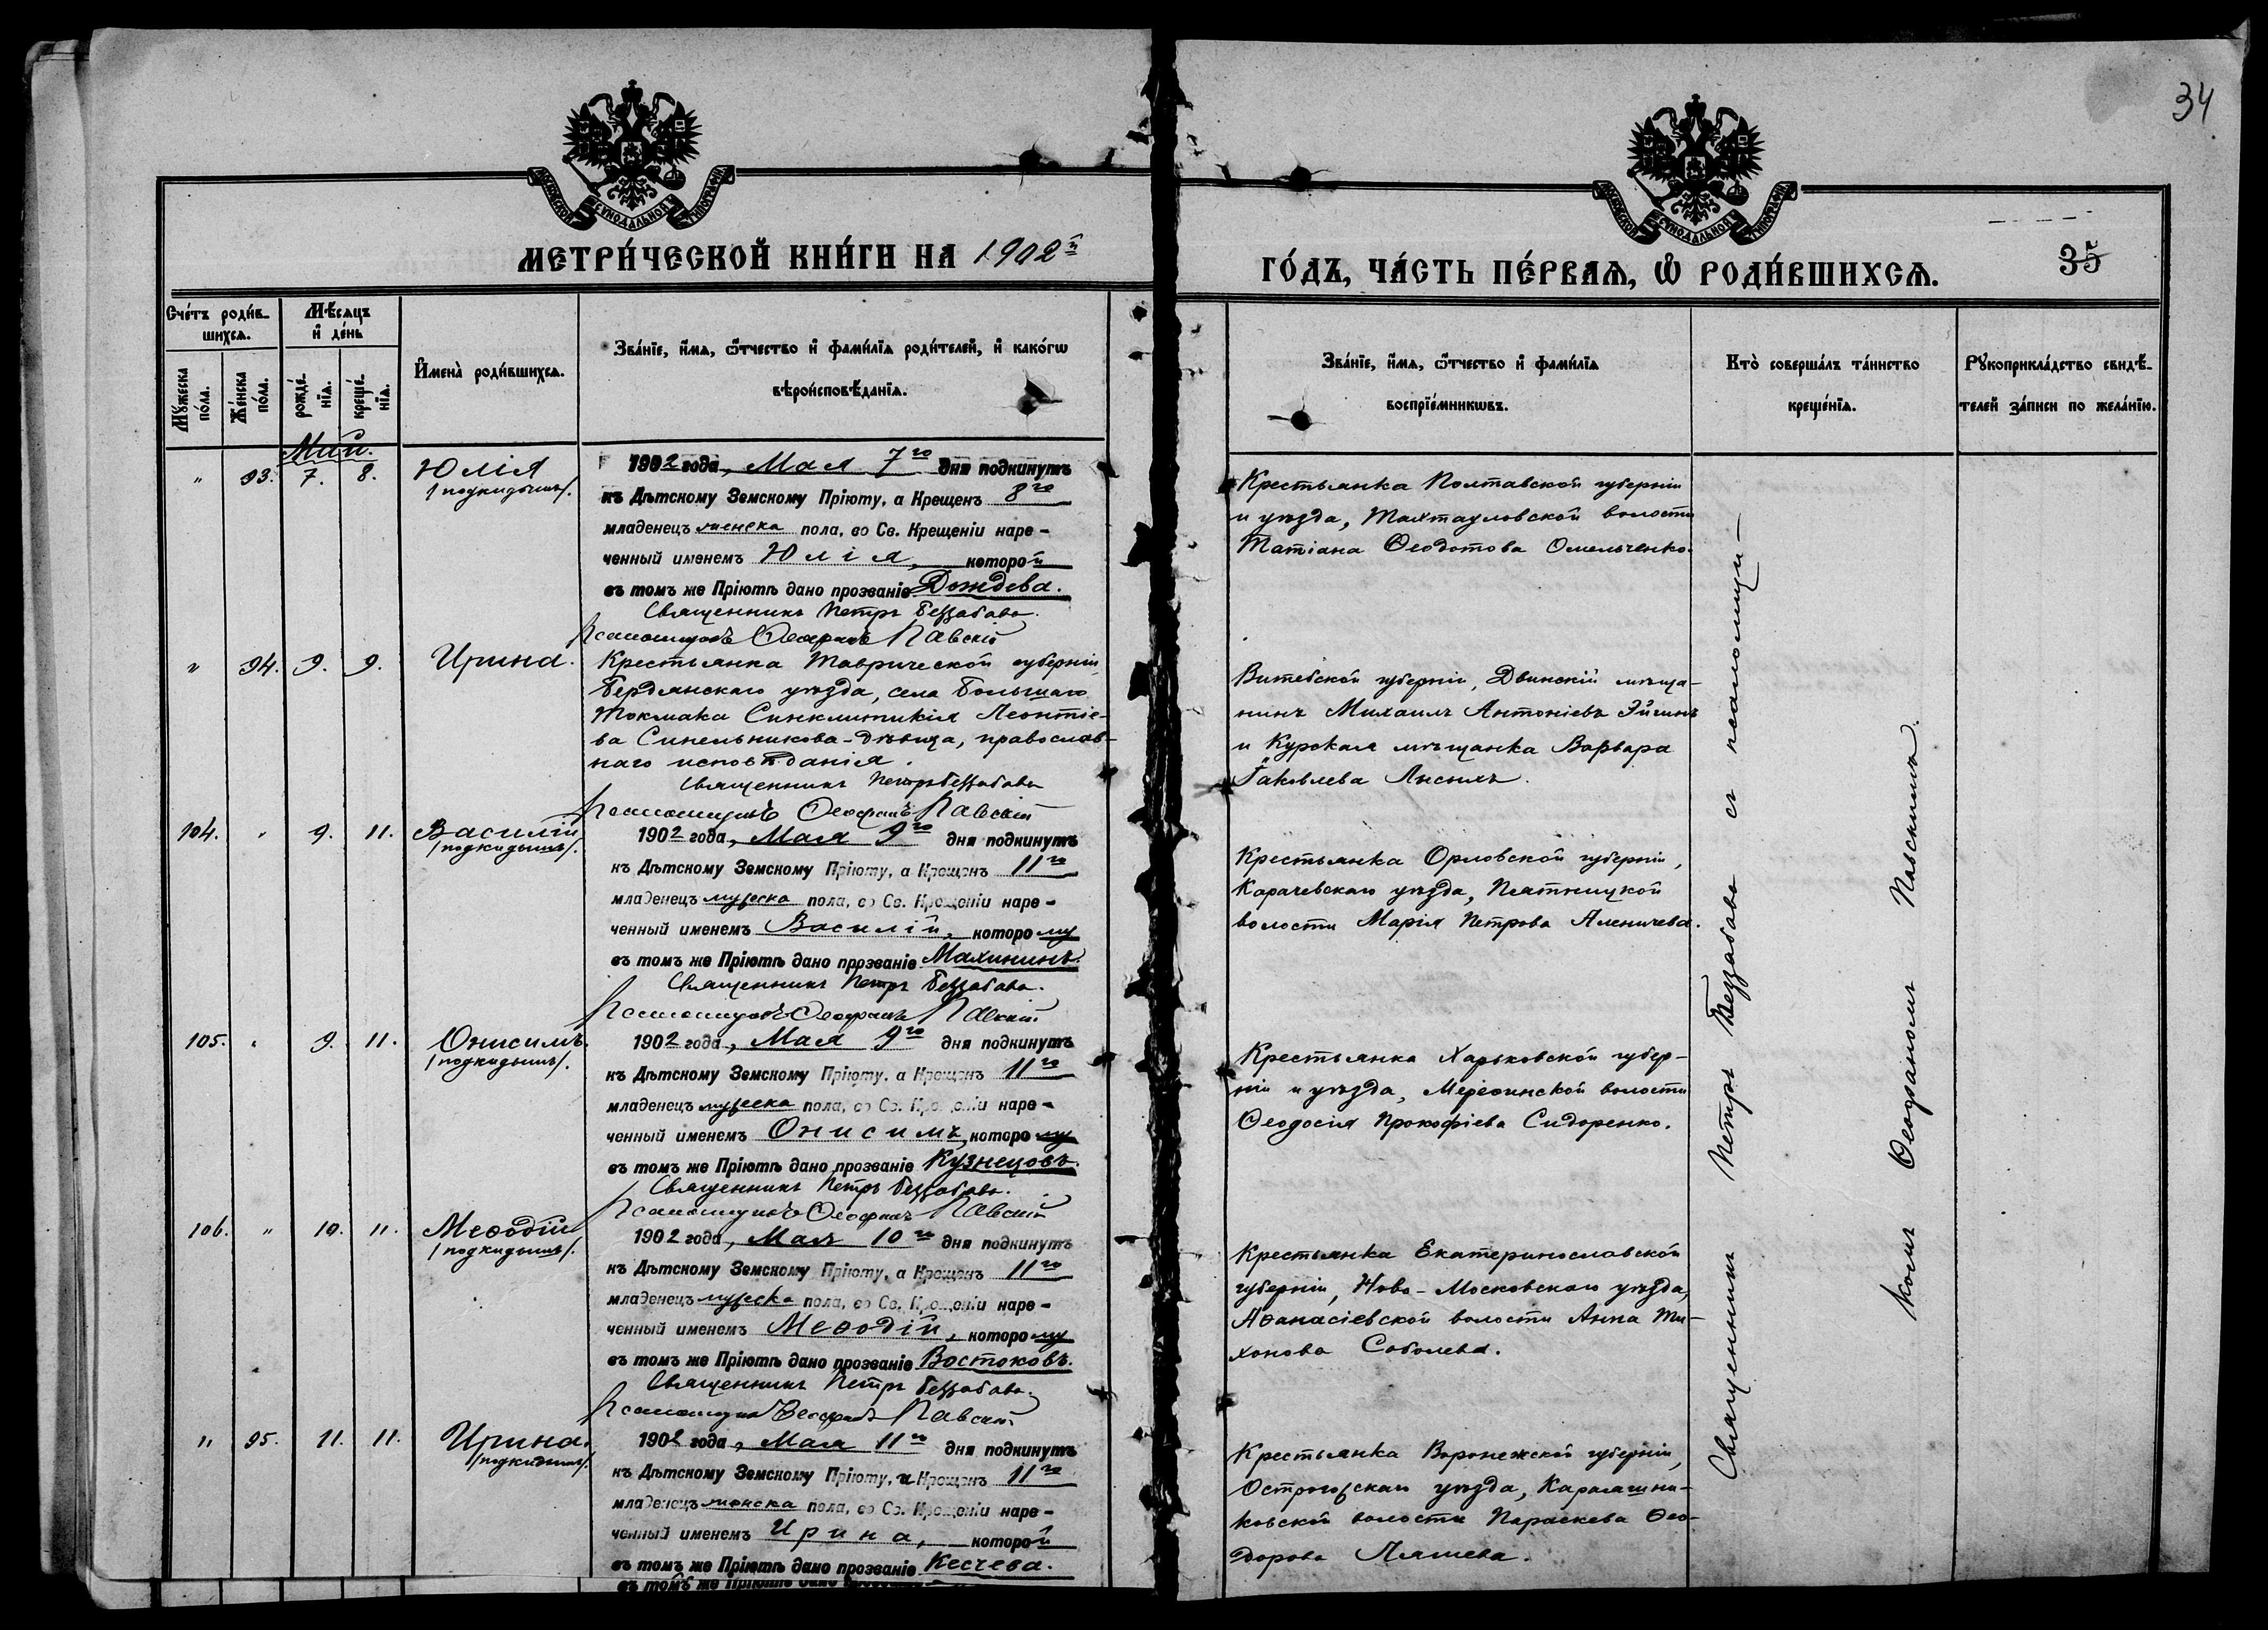 34
МОСКОВСКОЙ СѴНОДАЛЬНОЙ ТИПОГРАФІИ
МОСКОВСКОЙ СѴНОДАЛЬНОЙ ТИПОГРАФІИ
МЕТРИ́ЧЕСКОЙ КНИ́ГИ НА 1902й
ГО́ДЪ, ЧА́СТЬ ПЕ́РВАѦ, Ѽ РОДИ́ВШИХСѦ.
35
Сче́тъ роди́в-
шихсѧ.
Мꙋ́жеска
по́ла.
Же́нска
по́ла.
Мѣ́сѧцъ
и҆ де́нь
рожде́-
нїѧ.
креще́-
нїѧ.
И҆мена̀ роди́вшихсѧ.
Зва́нїе, и҆́мѧ, ѻ҆́тчество и҆ фами́лїѧ роди́телей, и҆ како́гѡ
вѣроисповѣ́данїѧ.
Зва́нїе, и҆́мѧ, ѻ҆́тчество и҆ фами́лїѧ
воспрїе́мникѡвъ.
Кто̀ соверша́лъ та́инство
креще́нїѧ.
Рꙋкоприкла́дство свидѣ́-
телей за́писи по жела́нїю.
Май.
" 93. 7. 8. Юлія
/подкидышъ/.
1902 года, Мая 7го дня подкинутъ
къ Дѣтскому Земскому Пріюту, а Крещенъ 8го
младенецъ женска пола, во Св. Крещеніи наре-
ченный именемъ Юлія, которой
въ томъ же Пріютѣ дано прозваніе Дождева.
Священникъ Петръ Беззабава.
Псаломщикъ Ѳеофанъ Павскій
Крестьянка Полтавской губерніи
и уѣзда, Тахтауловской волости
Татіана Ѳеодотова Омельченко.
" 94. 9. 9. Ирина.
Крестьянка Таврической губерніи,
Бердянскаго уѣзда, села Большаго
Токмака Синклитикія Леонтіе-
ва Синельникова-дѣвица, православ-
наго исповѣданія.
Священникъ Петръ Беззабава
Псаломщикъ Ѳеофанъ Павскій
Витебской губерніи, Двинскій мѣща-
нинъ Михаилъ Антоніевъ
и Курская мѣщанка Варвара
Іаковлева Лысыхъ.
104. " 9. 11. Василій
/подкидышъ/.
1902 года, Мая 9го дня подкинутъ
къ Дѣтскому Земскому Пріюту, а Крещенъ 11го
младенецъ мужеска пола, во Св. Крещеніи наре-
ченный именемъ Василій, которому
въ томъ же Пріютѣ дано прозваніе Махининъ.
Священникъ Петръ Беззабава.
Псаломщикъ Ѳеофанъ Павскій
Крестьянка Орловской губерніи,
Карачевскаго уѣзда, Пятницкой
волости Марія Петрова Аленичева.
105. " 9. 11. Онисимъ.
/подкидышъ/.
1902 года, Мая 9го дня подкинутъ
къ Дѣтскому Земскому Пріюту, а Крещенъ 11го
младенецъ мужеска пола, во Св. Крещеніи наре-
ченный именемъ Онисимъ, которому
въ томъ же Пріютѣ дано прозваніе Кузнецовъ.
Священникъ Петръ Беззабава.
Псаломщикъ Ѳеофанъ Павскій
Крестьянка Харьковской губер-
ніи и уѣзда, Мерефинской волости
Ѳеодосія Прокофіева Сидоренко.
106. " 10. 11. Меѳодій
/подкидышъ/.
1902 года, Мая 10го дня подкинутъ
къ Дѣтскому Земскому Пріюту, а Крещенъ 11го
младенецъ мужеска пола, во Св. Крещеніи наре-
ченный именемъ Меѳодій, которому
въ томъ же Пріютѣ дано прозваніе Востоковъ.
Священникъ Петръ Беззабава.
Псаломщикъ Ѳеофанъ Павскій
Крестьянка Екатеринославской
губерніи, Ново-Московскаго уѣзда,
Аѳанасіевской волости Анна Ти-
хонова Соболева.
" 95. 11. 11. Ирина.
/подкидышъ/.
1902 года, Мая 11го дня подкинутъ
къ Дѣтскому Земскому Пріюту, и Крещенъ 11го
младенецъ женска пола, во Св. Крещеніи наре-
ченный именемъ Ирина, которой
въ томъ же Пріютѣ дано прозваніе Кесчева.
Крестьянка Воронежской губерніи,
Острогожскаго уѣзда,
волости Параскева Ѳео-
дорова Ляшева.
Священникъ Петръ Беззабава съ псаломщи-
комъ Ѳеофаномъ Павскимъ.